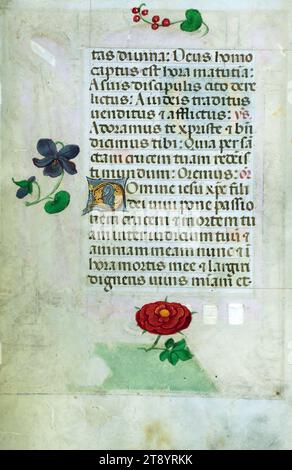 tas divina: Deus homo
captus est hora matutia:
A suis discipulis cito dere
lictus: A iudeis traditus
venditus & afflictus: ℣s.
Adoramus te xpriste & bn̄
dicimus tibi: Quia per sa̅
tam crucem tuam redeis
ti mundum: Oremus: or
Domine iesu xp̄e fili
dei vivi pone passio
nem crucem & mortem tu
am inter iudicium tuū &
animam meam nunc & i
hora mortis mee & largiri
digneris vivis miam et
alamy
Image ID: 2T8YRKK
www.alamy.com